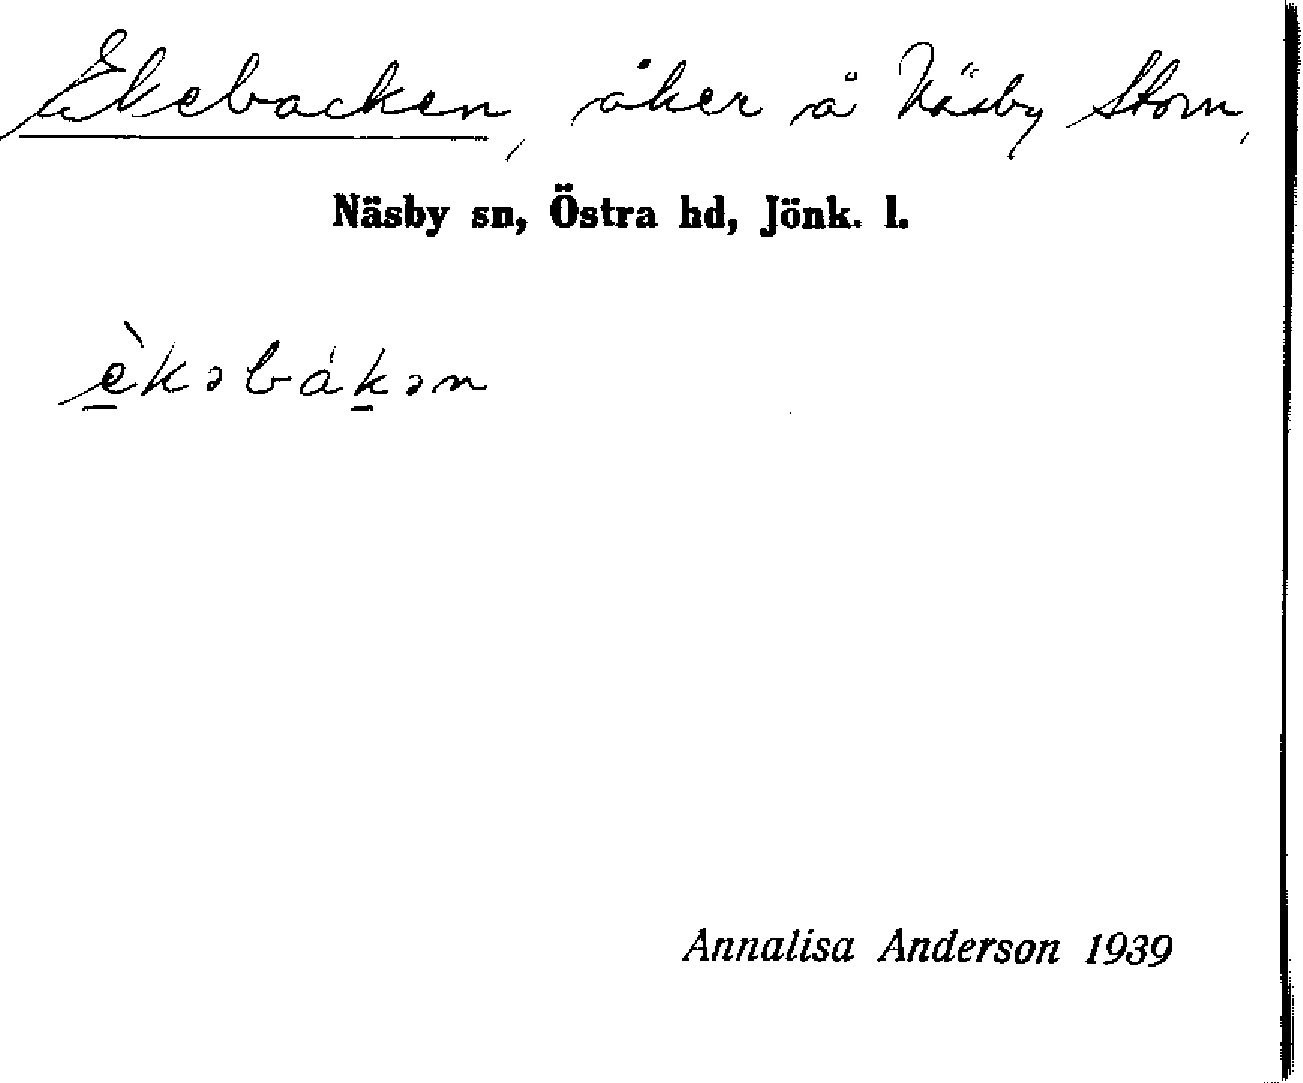 Ekebacken, åker å Näsby Storn,
Näsby sn, Östra hd, Jönk. l.
èkəbákən
Annalisa Anderson 1939